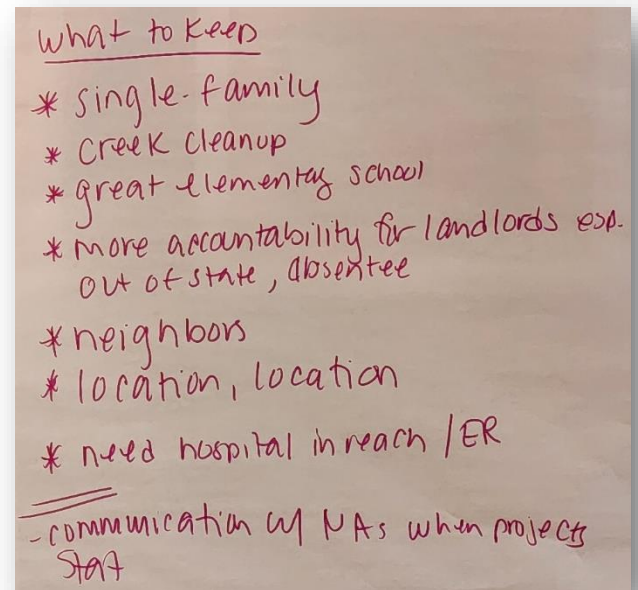 what to keep
* single-family
* creek cleanup
* great elementay school
* more accountability for landlords esp.
out of state, absentee
* neighbors
* location, location
* need hospital in reach / ER
- communication w/ NAs when projects
start